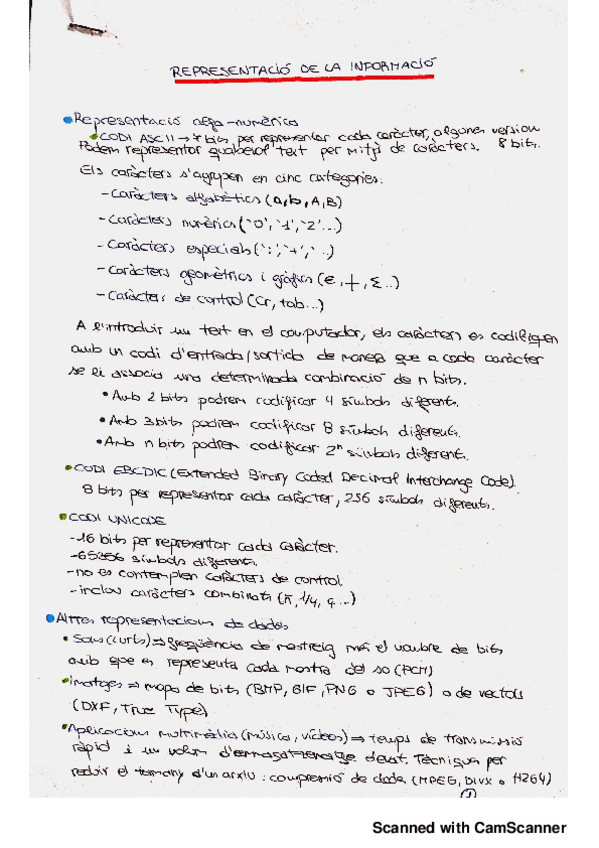 REPRESENTACIÓ DE LA INFORMACIÓ
Representació alfa-numèrica
CODI ASCII → 7 bits per representar cada caràcter, algunes version
Podem representar qualsevol text per mitjà de caràcters. 8 bits.
Els caràcters s'agrupen en cinc categories:
- Caràcters alfabètics (a, b, A, B)
- Caràcters numèrics ('0', '1', '2'...)
- Caràcters especials (':', '+', '..)
- Caràcters geomètrics i gràfics (€, ┼, Σ..)
- Caràcters de control (Cr, tab...)
A l'introduir un text en el computador, els caràcters es codifiquen
amb un codi d'entrada/sortida de manera que a cada caràcter
se li associa una determinada combinació de n bits.
• Amb 2 bits podrem codificar 4 símbols diferents.
• Amb 3 bits podrem codificar 8 símbols diferents.
• Amb n bits podrem codificar 2ⁿ símbols diferents.
• CODI EBCDIC (Extended Binary Coded Decimal Interchange Code).
8 bits per representar cada caràcter, 256 símbols diferents.
CODI UNICODE
- 16 bits per representar cada caràcter.
- símbols diferents.
- no es contemplen caràcters de control
- inclou caràcters combinats (ñ, 1/4, ...)
Altres representacions de dades
• Sons (curts) ⇒ freqüència de mostreig més el nombre de bits
amb que es representa cada mostra del so (PCM)
• Imatges ⇒ mapa de bits (BMP, GIF, PNG o JPEG) o de vectors
(DXF, True Type)
• Aplicacions multimèdia (música, vídeos) ⇒ temps de transmissió
ràpid i un volum d'emmagatzematge elevat. Tècniques per
reduir el tamany d'un arxiu: compressió de dades (MPEG, DIVX o H264)
1
Scanned with CamScanner